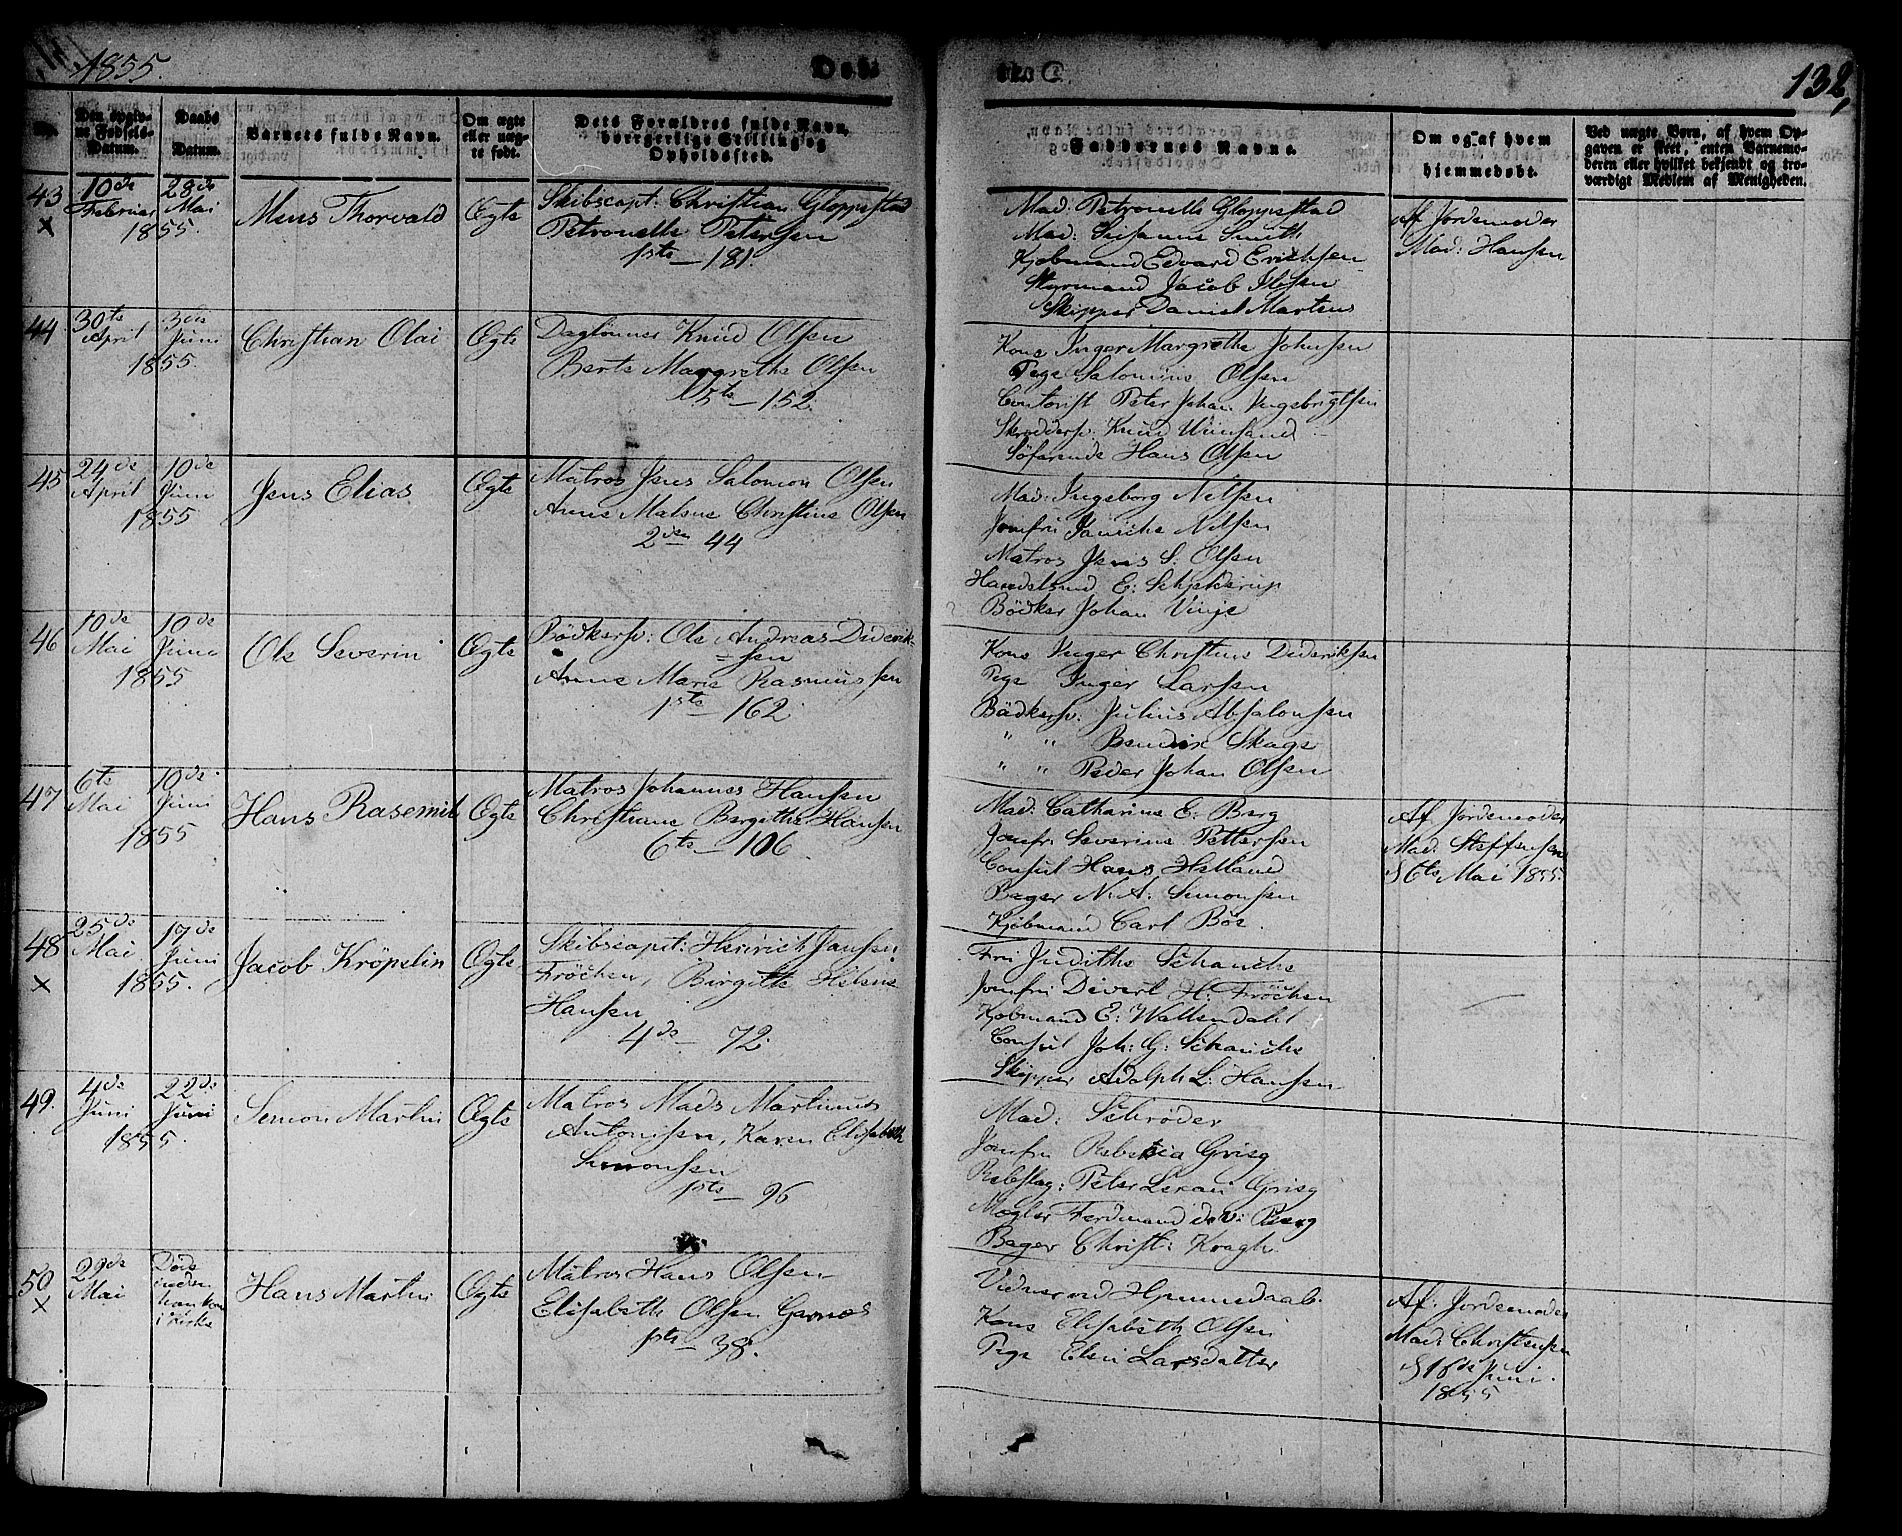 1855.
Døbte
132,
No.
Den opgiv-
ne Fødsels-
Datum.
Daabs
Datum.
Barnets fulde Navn.
Om ægte
eller uæg-
te født.
Dets Forældres fulde Navn,
borgerlige Stilling og
Opholdssted.
Faddernes Navne.
Om og af hvem
hjemmedøbt.
Ved uægte Børn, af hvem Op-
gaven er skeet, enten Barnemo-
deren eller hvilket bekjendt og tro-
værdigt Medlem af Menigheden.
43
×
10de
Februar
28de
Mai
1855.
Mens Thorvald
Ægte
Skibscapt: Christian Gloppestad
Petronelle Petersen
1ste — 181.
Mad: Petronelle Gloppestad
Mad: Susanne Smith
Kjøbmand Edvard Erichsen
Styrmand Jacob Ibsen
Skipper Daniel Martens
Af Jordemoder
Mad: Hansen
44
30te
April
3die
Juni
1855.
Christian Olai
Ægte
Daglønner Knud Olsen
Berte Margrethe Olsen
5te — 152.
Kone Inger Margrethe Johnsen
Pige Salomine Olsen
Contorist Peter Johan Ingebrigtsen
Skræddersv. Knud
Søfarende Hans Olsen
45
24de
April
10de
Juni
1855
Jens Elias
Ægte
Matros Jens Salomon Olsen
Anne Malene Christine Olsen
2den 44
Mad: Ingeborg Nilsen
Jomfru Nilsen
Matros Jens S: Olsen
Handelsmd E: Schjelderup
Bödker Johan Vinje
46
10de
Mai
10de
Juni
1855
Ole Severin
Ægte
Bödkersv: Ole Andreas Diderik-
=sen
Anne Marie Rasmussen
1ste — 162.
Kone Inger Christine Dideriksen
Pige Inger Larsen
Bödkersv: Julius Absalonsen
" " Bendix Skage
" " Peder Johan Olsen
47
6te
Mai
10de
Juni
1855
Hans Rasemil
Ægte
Matros Johannes Hansen
Christiane Bergithe Hansen
6te — 106.
Mad: Catharine E: Berg
Jomfr: Severine Pettersen
Consul Hans Helland
Bager N. A: Simonsen
Kjøbmand Carl Böe.
Af Jordemoder
Mad: Steffensen
d 6te Mai 1855.
48
×
25de
Mai
17de
Juni
1855.
Jacob Kröpelin
Ægte
Skibscapt: Heinrich Jansen
Fröchen, Birgitte Helene
Hansen
4de — 72.
Fru Judithe Schanche
Jomfru Divert H: Fröchen
Kjøbmand E: Wallendahl
Consul Joh: G: Schanche
Skipper Adolph L: Hansen
49.
4de
Juni
22de
Juni
1855.
Simon Martin
Ægte
Matros Mads Martinus
Antonisen, Karen Elisabeth
Simonsen
1ste — 96
Mad: Schrøder
Jomfru Rebekka Grieg
Rebslag: Peter Lexau Grieg
Mægler Ferdinand d: v: Berg
Bager Christ: Kragh
50
×
29de
Mai
Døde
inden
han kom
i Kirke
Hans Martin
Ægte
Matros Hans Olsen
Elisabeth Olsen Garnes
1ste — 38.
Vidner ved Hjemmedaab.
Kone Elisabeth Olsen
Pige Elen Larsdatter
Af: Jordemoder
Mad: Christensen
d 16de Juni.
1855